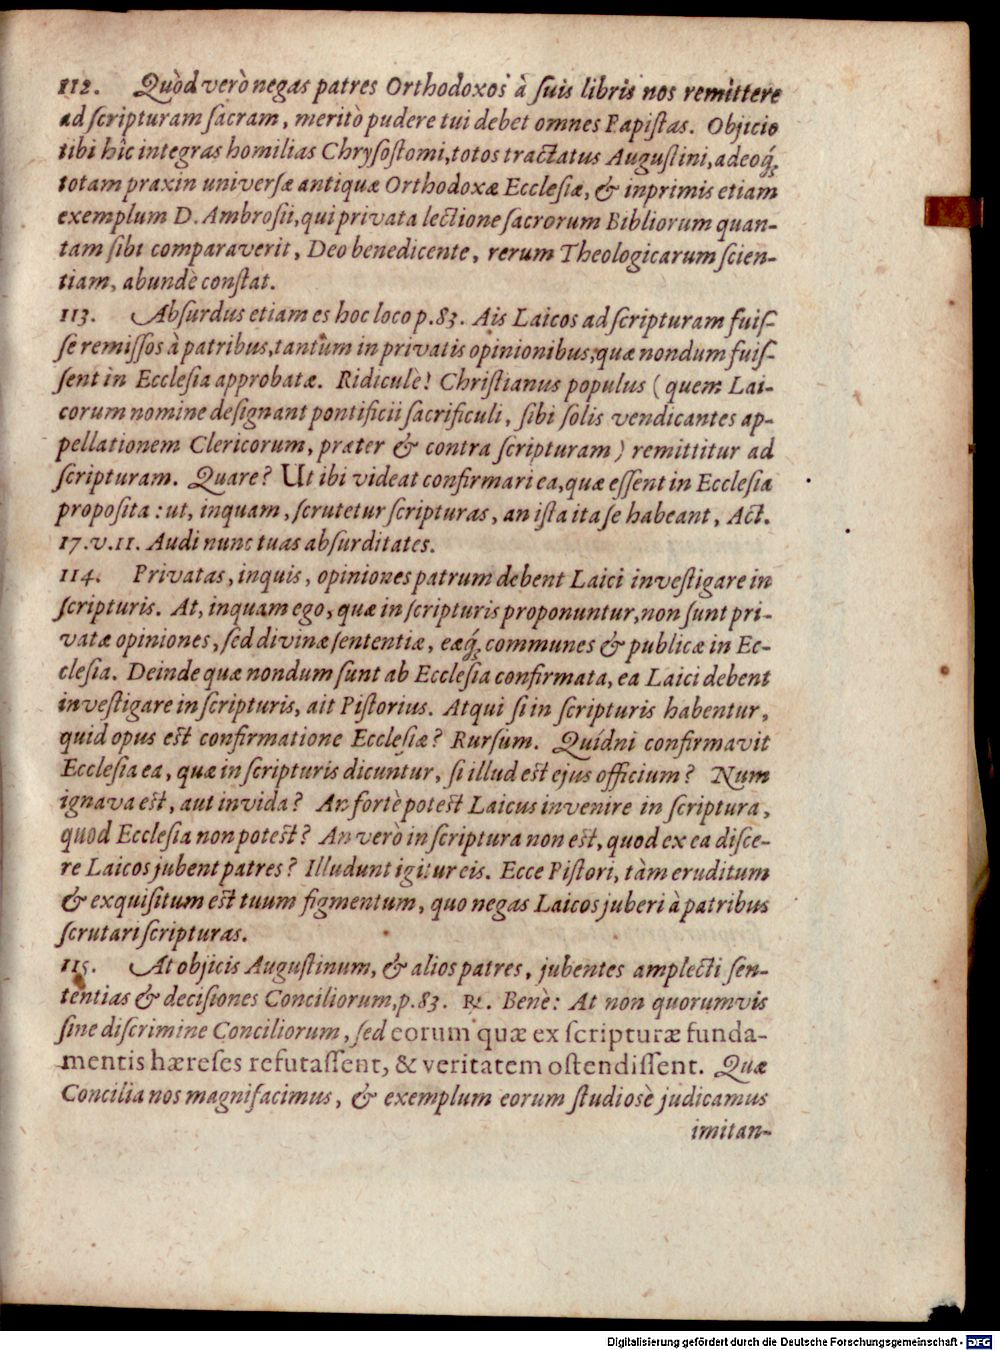 112. Quòd verò negas patres Orthodoxos à ſuis libris nos remittere
ad ſcripturam ſacram, meritò pudere tui debet omnes Papiſtas. Objicio
tibi hîc integras homilias Chryſoſtomi, totos tractatus Auguſtini, adeoq́;
totam praxin univerſæ antiquæ Orthodoxæ Eccleſiæ, & inprimis etiam
exemplum D. Ambroſii, qui privata lectione ſacrorum Bibliorum quan-
tam ſibi comparaverit, Deo benedicente, rerum Theologicarum ſcien-
tiam, abundè conſtat.
113. Abſurdus etiam es hoc loco p. 83. Ais Laicos ad ſcripturam fuiſ-
ſe remiſſos à patribus, tantùm in privatis opinionibus, quæ nondum fuiſ-
ſent in Eccleſia approbatæ. Ridiculè! Chriſtianus populus ( quem Lai-
corum nomine deſignant pontificii ſacrificuli, ſibi ſolis vendicantes ap-
pellationem Clericorum, præter & contra ſcripturam ) remittitur ad
ſcripturam. Quare? Ut ibi videat confirmari ea, quæ eſſent in Eccleſia
propoſita: ut, inquam, ſcrutetur ſcripturas, an iſta ita ſe habeant, Act.
17. v. 11. Audi nunc tuas abſurditates.
114. Privatas, inquis, opiniones patrum debent Laici inveſtigare in
ſcripturis. At, inquam ego, quæ in ſcripturis proponuntur, non ſunt pri-
vatæ opiniones, ſed divinæ ſententiæ, eæq́; communes & publicæ in Ec-
cleſia. Deinde quæ nondum ſunt ab Eccleſia confirmata, ea Laici debent
inveſtigare in ſcripturis, ait Piſtorius. Atqui ſi in ſcripturis habentur,
quid opus eſt confirmatione Eccleſiæ? Rurſum. Quidni confirmavit
Eccleſia ea, quæ in ſcripturis dicuntur, ſi illud eſt ejus officium? Num
ignava eſt, aut invida? An fortè poteſt Laicus invenire in ſcriptura,
quod Eccleſia non poteſt? An verò in ſcriptura non eſt, quod ex ea diſce-
re Laicos jubent patres? Illudunt igitur eis. Ecce Piſtori, tàm eruditum
& exquiſitum eſt tuum figmentum, quo negas Laicos juberi à patribus
ſcrutari ſcripturas.
115. At objicis Auguſtinum, & alios patres, jubentes amplecti ſen-
tentias & deciſiones Conciliorum, p. 83. ℞. Benè: At non quorumvis
ſine diſcrimine Conciliorum, ſed eorum quæ ex ſcripturæ funda-
mentis hæreſes refutaſſent, & veritatem oſtendiſſent. Quæ
Concilia nos magnifacimus, & exemplum eorum ſtudiosè judicamus
imitan-
Digitalisierung gefördert durch die Deutsche Forschungsgemeinschaft - DFG